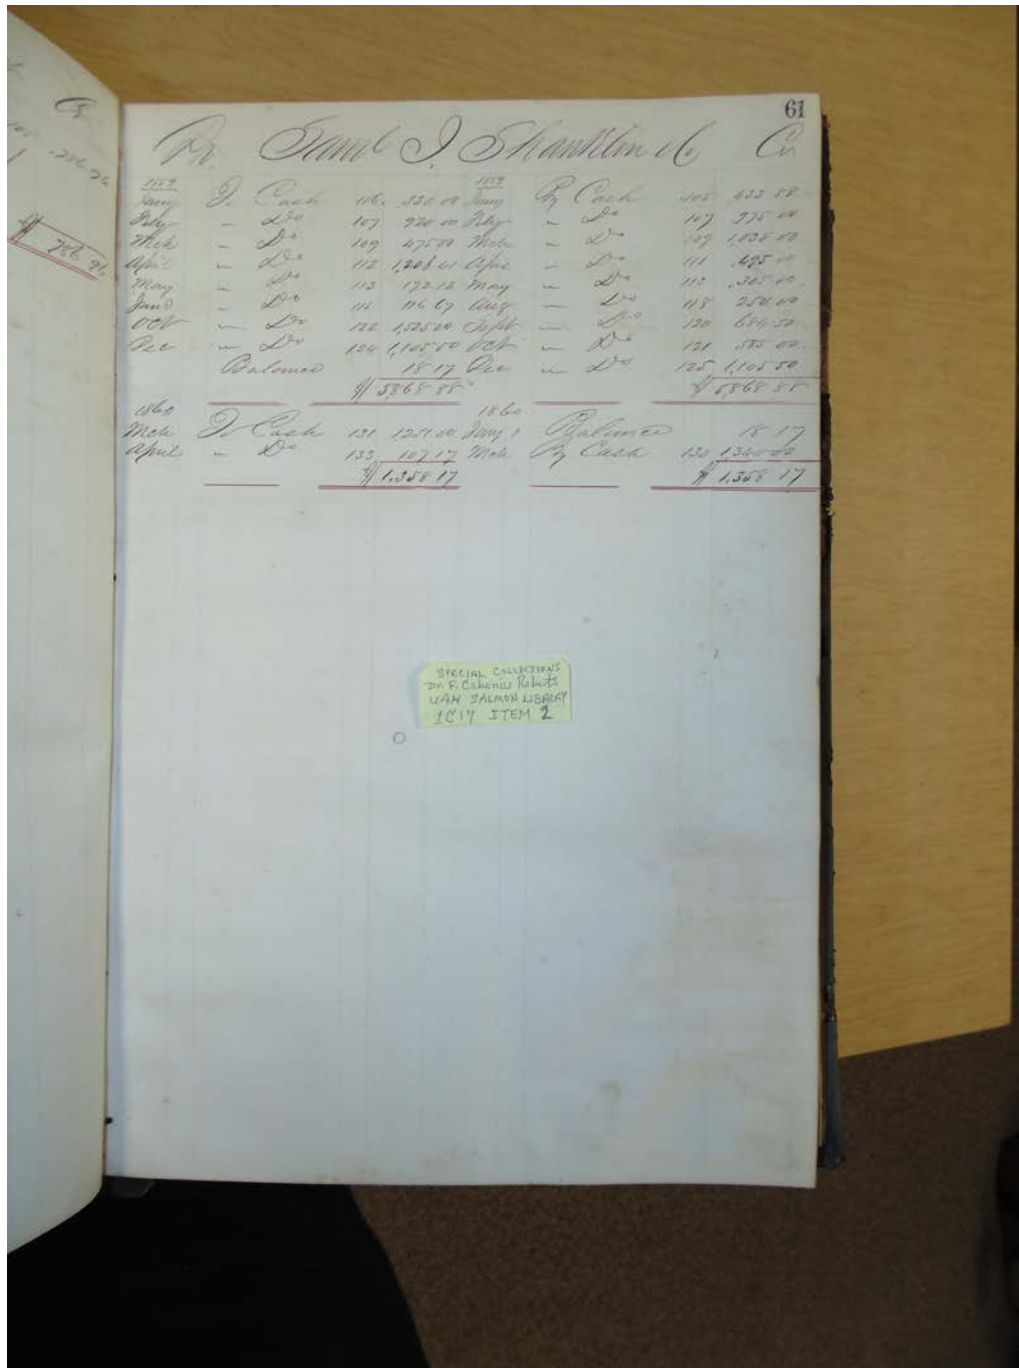 Cr
786 96
$ 786 96
61
Dr. Saml J. Shanklin & Co Cr
1859 1859
Jany To Cash 106 330 00 Jany By Cash 105 433 88
Feby " Do 107 920 00 Feby " Do 107 975 00
Mch " Do 109 475 00 Mch " Do 109 1,038 00
April " Do 112 1,208 01 Apri " Do 111 495 00
May " Do 113 172 13 May " Do 113 305 00
June " Do 116 116 67 Aug " Do 118 250 00
Oct " Do 122 1,525 00 Sept " Do 120 684 50
Dec " Do 124 1,105 50 Oct " Do 121 585 00
Balance 18 17 Dec " Do 125 1,105 50
$ 5,868 88 $ 5,868 88
1860 1860
Mch To Cash 131 1251 00 Jany 1 Balance 18 17
April " Do 133 107 17 Mch By Cash 130 1,340 00
$ 1,358 17 $ 1,358 17
SPECIAL COLLECTIONS
Dr. F. Cabaniss Roberts
UAH SALMON LIBRARY
1C17 ITEM 2